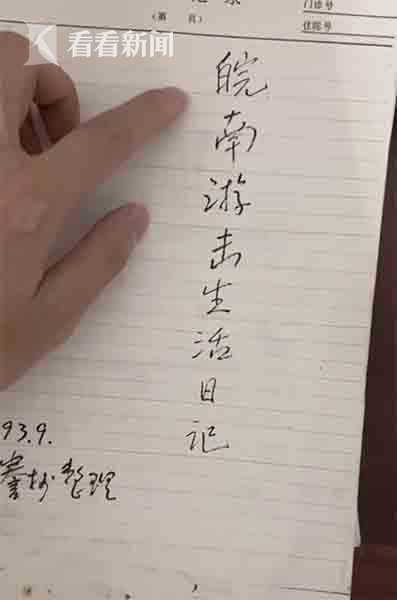 看看新闻
录
(第 页)
门诊号
住院号
皖南游击生活日记
93.9.
整理